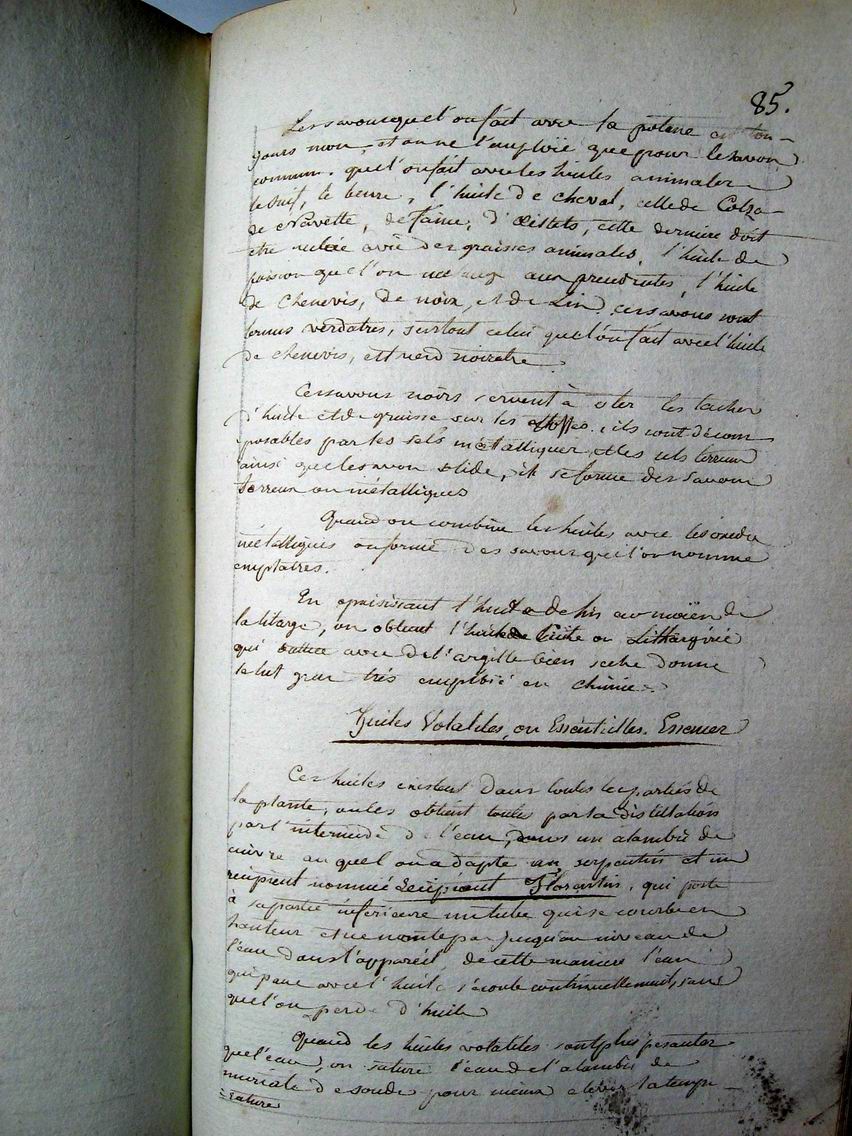 85.
Les savons que l'on fait avec la potasse est tou-
jours mou, et on ne l'emploïe que pour le savon
commun. que l'on fait avec les huiles animales
le suif, le beure, l'huile de cheval, celle de Colza
de Navette, de faine, d'Œillets, cette derniere doit
etre melée avec des graisses animales, l'huile de
poisson que l'on melange aux precedentes, l'huile
de Chenevis, de noix, et de Lin, ces savons sont
verdatres, surtout celui que l'on fait avec l'huile
de chenevis, est verd noiratre.
Ces savons noirs servent à oter les taches
d'huile et de graisse sur les étoffes. ils sont décom-
posables par les sels métalliques et les sels terreux
ainsi que les savon solide, il se forme des savons
terreux ou métalliques
Quand on combine les huiles avec les oxides
métalliques on forme des savons que l'on nomme
emplatres.
En epaisissant l'huile de lin au moïen de
la litarge, on obtient l'huile cuite ou Lithargirée
qui battue avec de l'argille bien seche donne
le lut gras très emploïé en chimie.
Huiles Volatiles, ou Essentielles. Essences
Ces huiles existent dans toutes les parties de
la plante, on les obtient toutes par la distillation
par l'intermede de l'eau, dans un alambic de
cuivre auquel on adapte un serpentin et un
recipient nommé Recipient Florentin, qui porte
à sa partie inférieure un tube qui se courbe en
hauteur et ne monte pas jusqu'au niveau de
l'eau dans l'appareil de cette maniere l'eau
qui passe avec l'huile s'écoule continuellement, sans
que l'on perde d'huile
Quand les huiles volatiles sont plus pesantes
que l'eau, on sature l'eau de l'alambic de
muriate de soude pour mieux elever la tempe-
rature